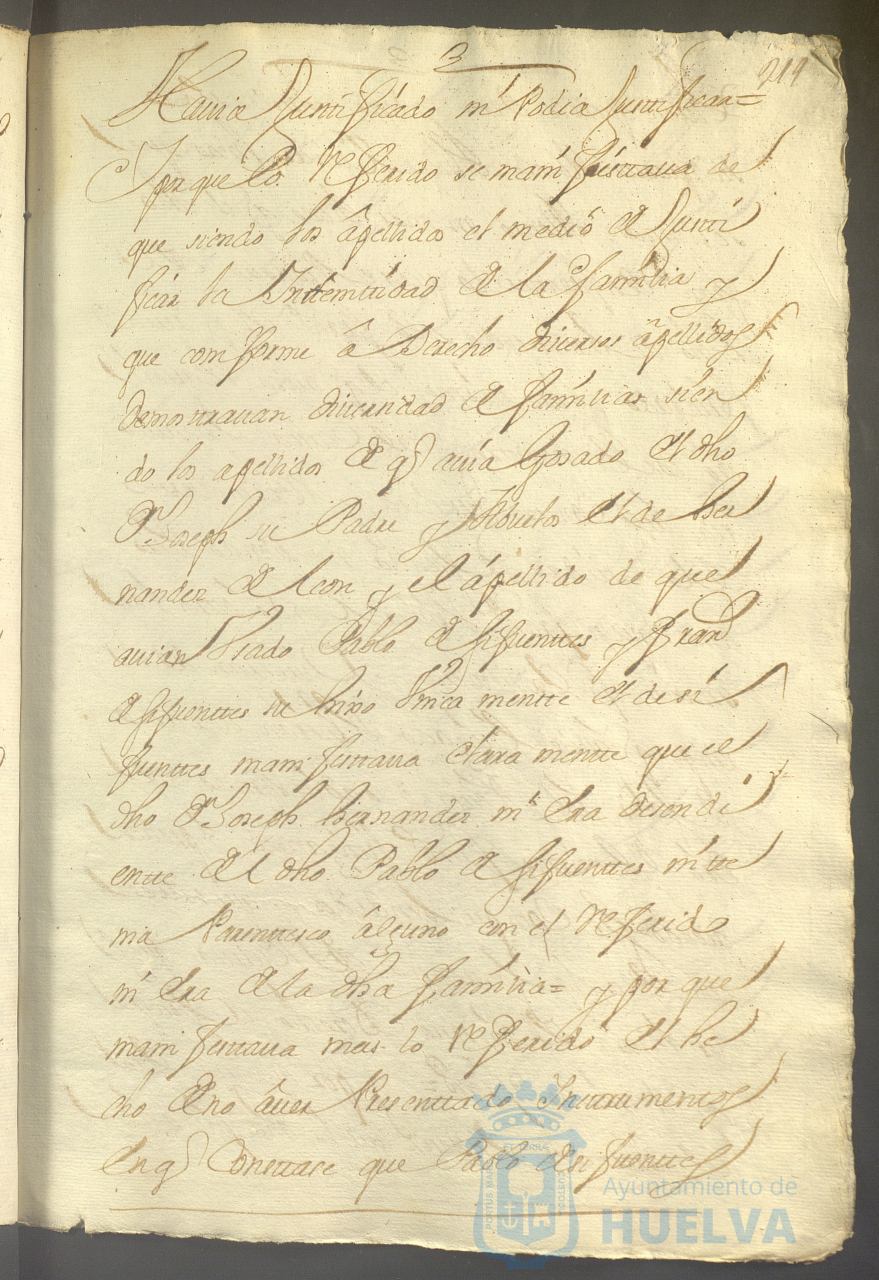 3
214
Hauia Justificado ni Podia Justificar=
Y porque lo Referido se manifesttaua de
que siendo los apellidos el medio de Justi
ficar la Indemtidad de la familia y
que comforme â Derecho diuersos apellidos
demostrauan diuersidad de familias sien
do los apellidos de q auia Gosado el dho
Dn Joseph su Padre y Abuelos el de her
nandez de leon y el apellido de que
auian Vsado Pablo de sifuenttes y Fran
de sifuenttes su hixo Vnicamentte el de si
fuenttes manifesttaua claramentte que el
dho Dn Joseph hernandez ni Era desendi
entte del dho Pablo de sifuenttes ni tte
nia Parenttesco alguno con el Referido
ni Era de la dha familia= y por que
manifesttaua mas lo Referido el he
cho de no auer Presenttado Insttrumentos
En q Consttase que Pablo de sifuenttes
Ayuntamiento de
HUELVA